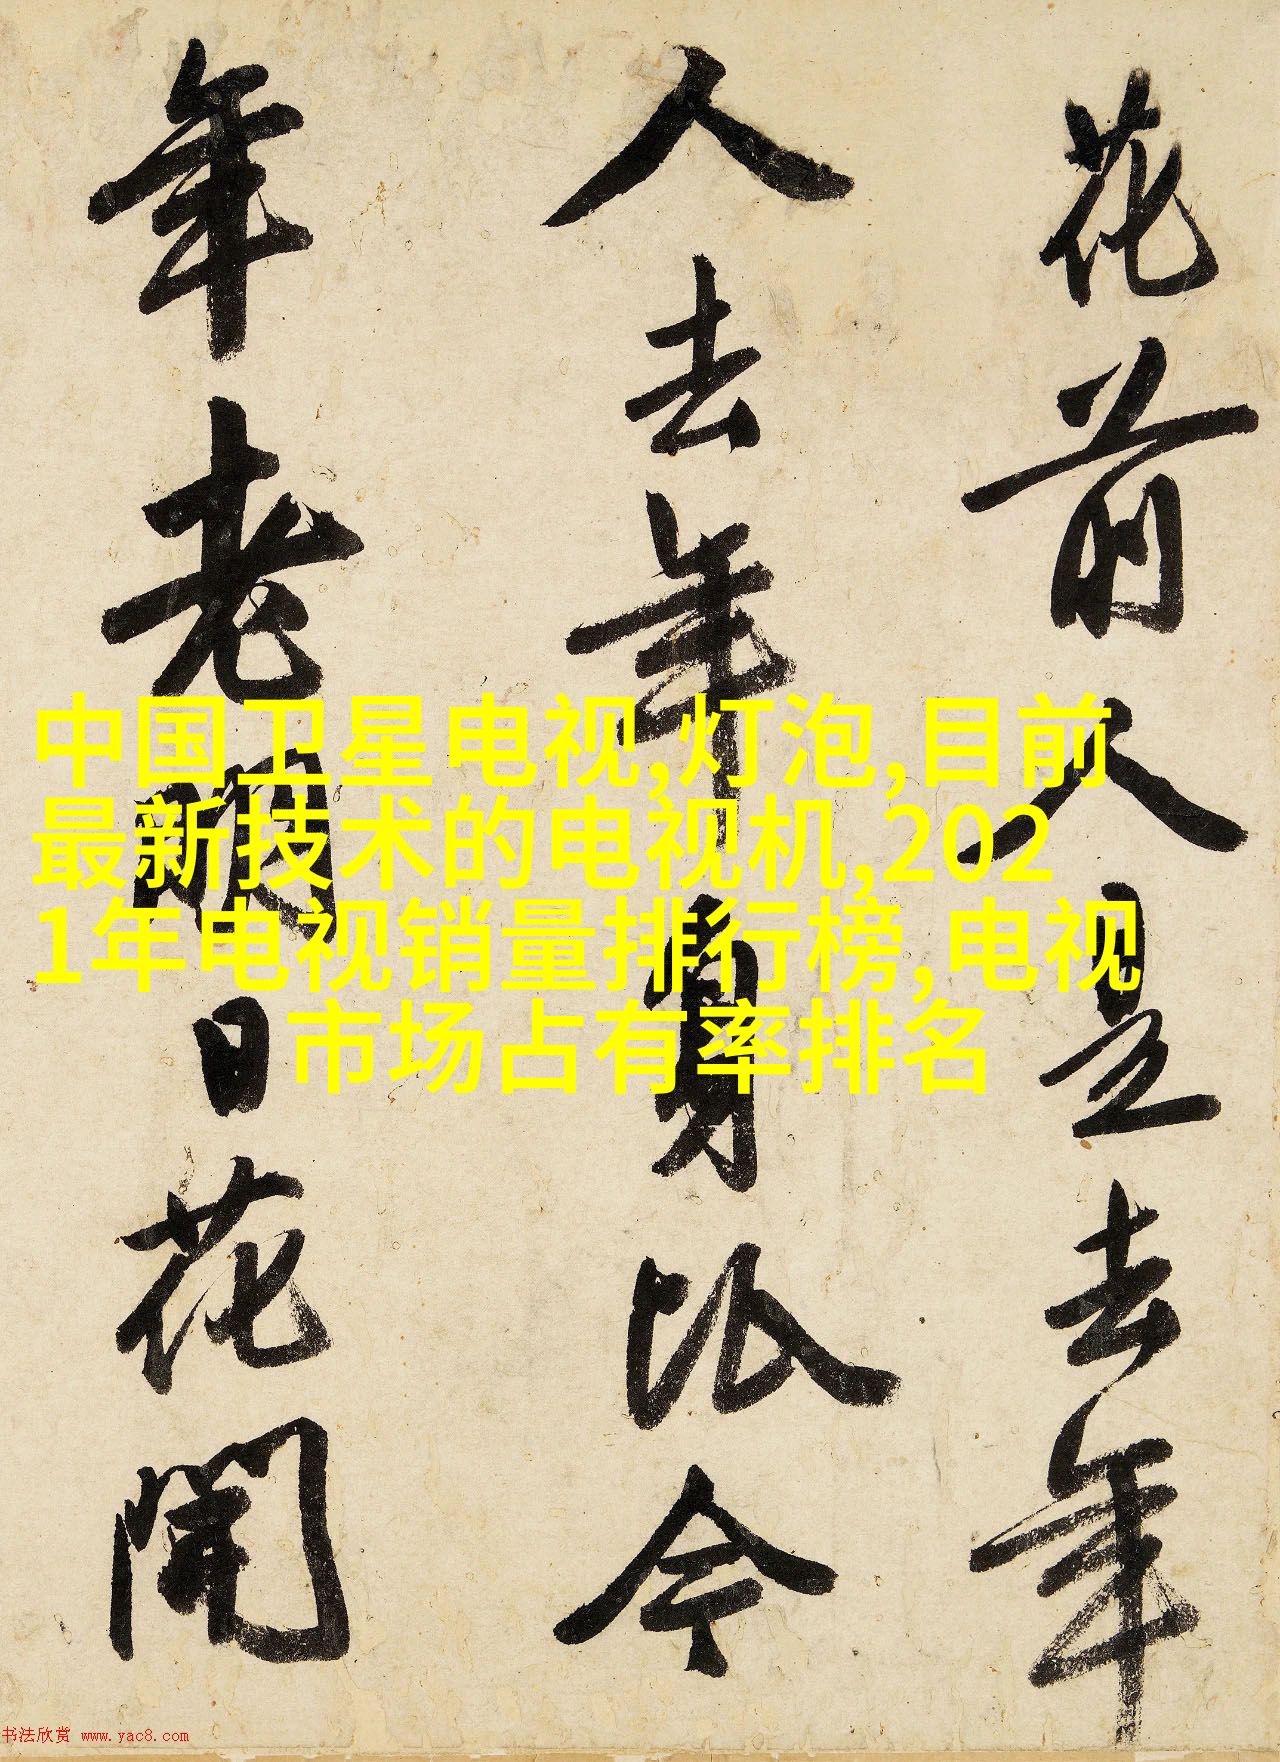 花前人是去年
人去年身比今
年老明日花開
中国卫星电视,灯泡,目前
最新技术的电视机,202
1年电视销量排行榜,电视
市场占有率排名
书法欣赏 www.yac8.com